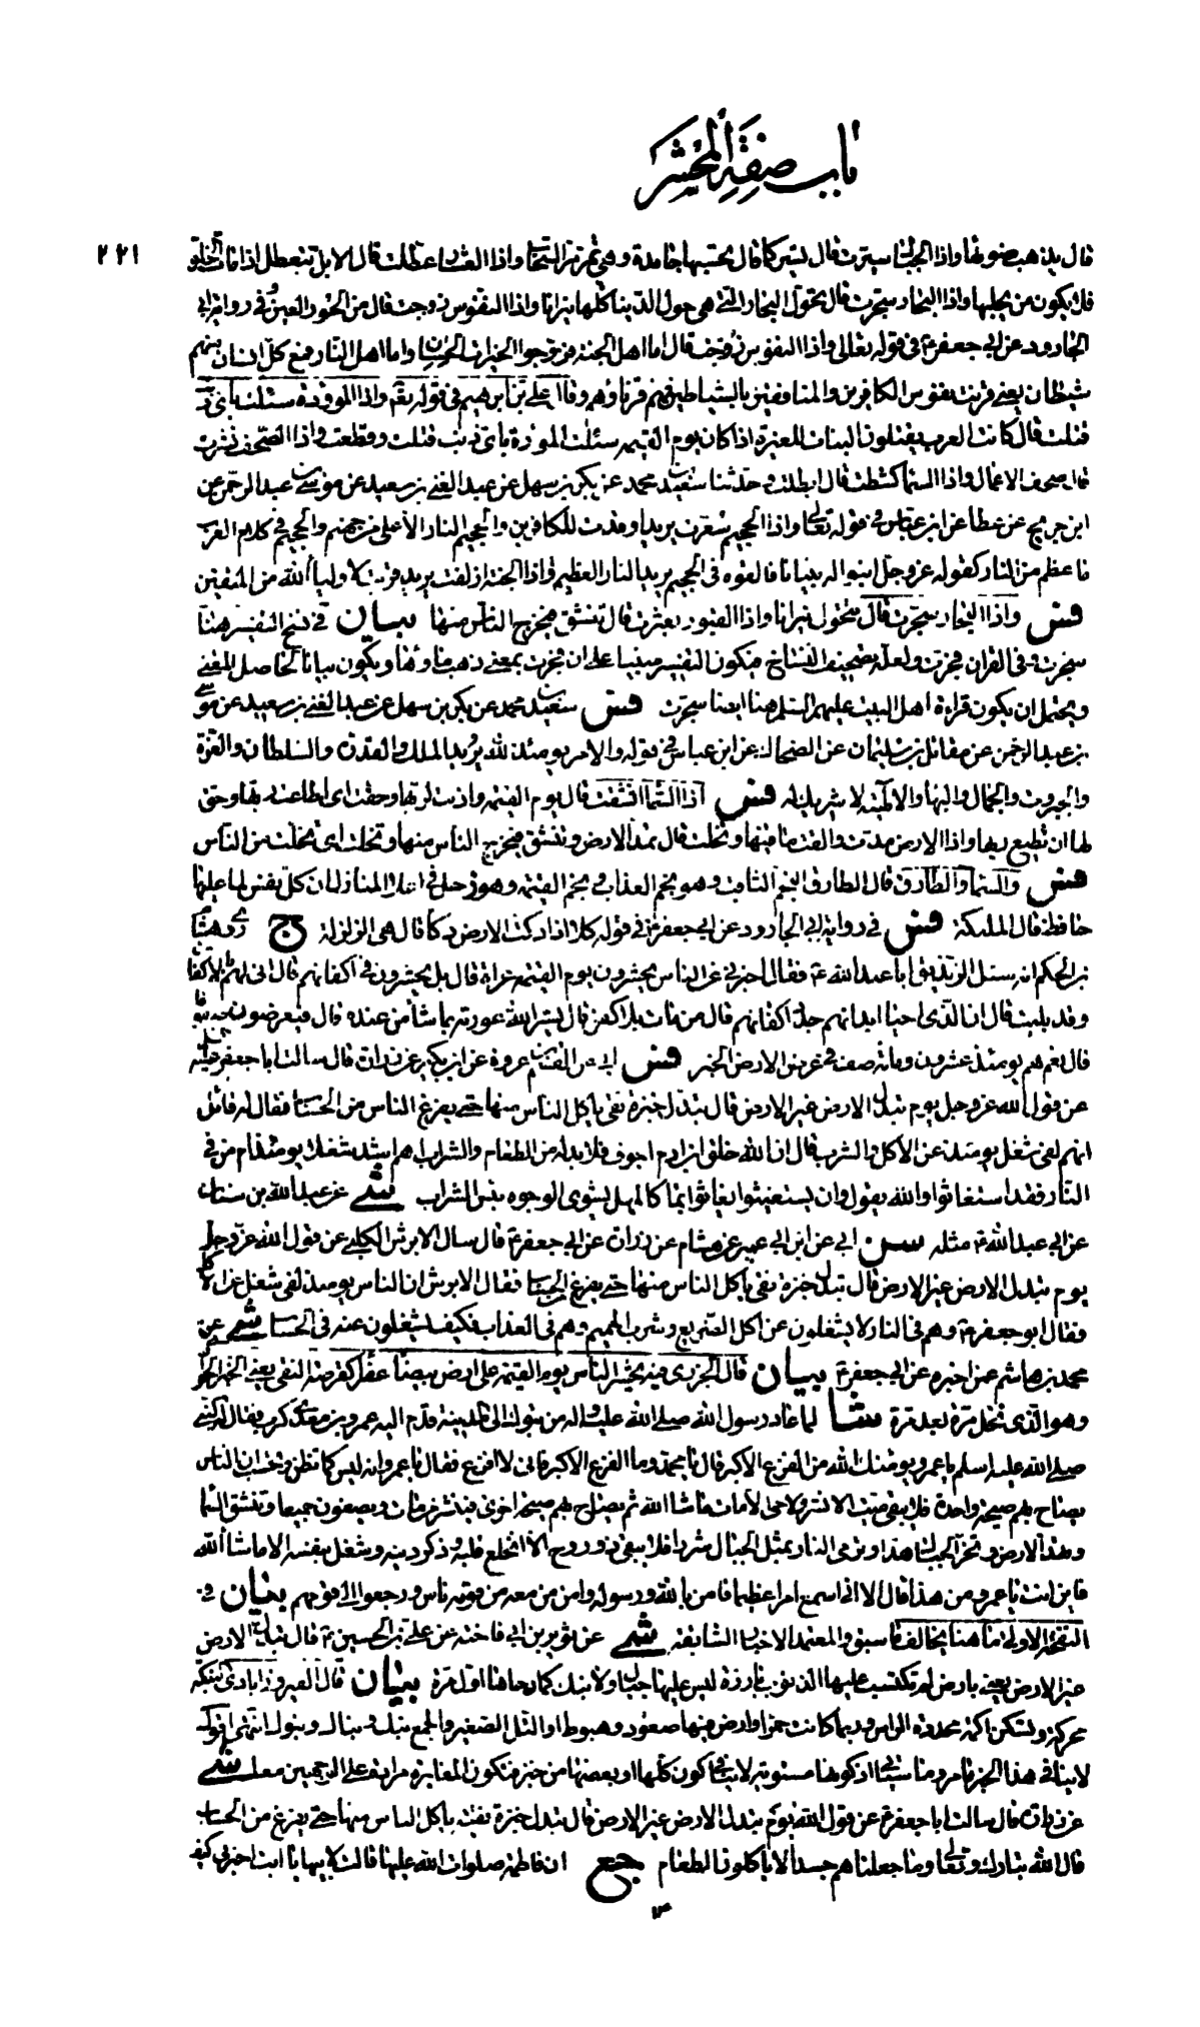 باب صفة المحشر
٢٢١
قال يذهب ضوئها واذا الجبال سيرت قال تسير كما قال تحسبها جامدة وهي تمر مر السحاب واذا العشار عطلت قال الابل تتعطل اذا مات الخلق
فلا يكون من يحلبها واذا البحار سجرت قال تحول البحار التي هي حول الدنيا كلها نيرانا واذا النفوس زوجت قال من الحور العين وفي رواية ابي
الجارود عن ابي جعفر ع في قوله تعالى واذا النفوس زوجت قال اما اهل الجنة فزوجوا الخيرات الحسان واما اهل النار فمع كل انسان منهم
شيطان يعني قرنت نفوس الكافرين والمنافقين بالشياطين فهم قرناؤهم وقال علي بن ابراهيم في قوله تعه واذا الموؤدة سئلت باي ذنب
قتلت قال كانت العرب يقتلون البنات للغيرة اذا كان يوم القيمه سئلت الموؤدة باي ذنب قتلت وقطعت واذا الصحف نشرت
قال صحف الاعمال واذا السماء كشطت قال ابطلت وحدثنا سعيد بن محمد عن بكر بن سهل عن عبد الغني بن سعيد عن موسى بن عبد الرحمن عن
ابن جريج عن عطا عن ابن عباس في قوله تعالى واذا الجحيم سعرت يريد اوقدت للكافرين والجحيم النار الاعلى من جهنم والجحيم في كلام العرب
ما عظم من النار كقوله عز وجل ابنوا له بنيانا فالقوه في الجحيم يريد النار العظيم واذا الجنة ازلفت يريد قربت لاولياء الله من المتقين
فس واذا البحار سجرت قال تتحول نيرانا واذا القبور بعثرت قال تنشق فيخرج الناس منها بيان في نسخ التفسير هنا
سجرت وفي القران فجرت ولعله تصحيف النساخ فيكون التفسير مبنيا على ان فجرت بمعنى ذهب ماؤها ويكون بيانا لحاصل المعنى
ويحتمل ان يكون قراءة اهل البيت عليهم السلم هنا ايضا سجرت فس سعيد بن محمد عن بكر بن سهل عن عبد الغني بن سعيد عن موسى
بن عبد الرحمن عن مقاتل بن سليمان عن الضحاك عن ابن عباس في قوله والامر يومئذ لله يريد الملك والقدرة والسلطان والعزة
والجبروت والجمال والبهاء والالهية لا شريك له فس اذا السماء انشقت قال يوم القيمه واذنت لربها وحقت اي اطاعت ربها وحق
لها ان تطيع ربها واذا الارض مدت والقت ما فيها وتخلت قال تمد الارض وتنشق فيخرج الناس منها وتخلت اي تخلت من الناس
فس والسماء والطارق قال الطارق النجم الثاقب وهو نجم العذاب ونجم القيمه وهو زحل في اعلا المنازل ان كل نفس لما عليها
حافظ قال الملئكة فس في رواية ابي الجارود عن ابي جعفر ع في قوله كلا اذا دكت الارض دكا قال هي الزلزلة ج روى هشام
بن الحكم انه سئل الزنديق ابا عبد الله ع فقال اخبرني عن الناس يحشرون يوم القيمه عراة قال بل يحشرون في اكفانهم قال انى لهم بالاكفان
وقد بليت قال ان الذي احيا ابدانهم جدد اكفانهم قال من مات بلا كفن قال يستر الله عورته بما شاء من عنده قال فيعرضون صفوفا
قال نعم هم يومئذ عشرون ومائة صف في عرض الارض الخبر فس ابي عن القسم بن عروة عن ابن بكير عن زرارة قال سالت ابا جعفر ع
عن قول الله عز وجل يوم تبدل الارض غير الارض قال تبدل خبزة نقي ياكل الناس منها حتى يفرغ الناس من الحساب فقال له قائل
انهم لفي شغل يومئذ عن الاكل والشرب قال ان الله خلق ابن ادم اجوف فلا بد له من الطعام والشراب اهم اشد شغلا يومئذ ام من في
النار فقد استغاثوا والله يقول وان يستغيثوا يغاثوا بماء كالمهل يشوي الوجوه بئس الشراب شى عن عبد الله بن سنان
عن ابي عبد الله ع مثله سن ابي عن ابن ابي عمير عن هشام عن زرارة عن ابي جعفر ع قال سال الابرش الكلبي عن قول الله عز وجل
يوم تبدل الارض غير الارض قال تبدل خبزة نقي ياكل الناس منها حتى يفرغ الحساب فقال الابرش ان الناس يومئذ لفي شغل عن الاكل
فقال ابو جعفر ع وهم في النار لا يشغلون عن اكل الضريع وشرب الحميم وهم في العذاب فكيف يشغلون عنه في الحساب شى عن
محمد بن هاشم عمن اخبره عن ابي جعفر ع بيان قال الجزري فيه يحشر الناس يوم القيمة على ارض بيضاء عفراء كقرصة النقي يعني الخبز الحوارى
وهو الذي نخل مرة بعد مرة شا لما عاد رسول الله صلى الله عليه واله من تبوك الى المدينة قدم اليه عمرو بن معدي كرب فقال له النبي
صلى الله عليه اسلم يا عمرو يومنك الله من الفزع الاكبر قال يا محمد وما الفزع الاكبر فاني لا افزع فقال يا عمرو انه ليس كما تظن وتحسب ان الناس
يصاح بهم صيحة واحدة فلا يبقى ميت الا نشر ولا حي الا مات الا ما شاء الله ثم يصاح بهم صيحة اخرى فينشر من مات ويصفون جميعا وتنشق السماء
وتهد الارض وتخر الجبال هدا وترمي النار بمثل الجبال شررا فلا يبقى ذو روح الا انخلع قلبه وذكر دينه وشغل بنفسه الا ما شاء الله
فاين انت يا عمرو من هذا قال الا اني اسمع امرا عظيما فامن بالله ورسوله وامن من معه من قومه ناس ورجعوا الى قومهم بيان في
النفخة الاولى ما هنا يخالف ما سبق والمعتمد الاخبار السابقه شى عن ثوير بن ابي فاخته عن علي بن الحسين ع قال تبدل الارض
غير الارض يعني بارض لم تكتسب عليها الذنوب بارزة ليس عليها جبال ولا نبات كما دحاها اول مرة بيان قال الفيروزابادي النبكة
محركة وتسكن اكمة محددة الراس وربما كانت حمراء وارض فيها صعود وهبوط او التل الصغير والجمع نبك ونباك ونبوك انتهى اقول
لا ينافي هذا الخبر ما مر وما سياتي اذ كونها مستوية لا ينافي كون كلها او بعضها من خبز فتكون المغايرة مرادة على الوجهين معا شى
عن زرارة قال سالت ابا جعفر ع عن قول الله يوم تبدل الارض غير الارض قال تبدل خبزة نقية ياكل الناس منها حتى يفرغ من الحساب
قال الله تبارك وتعالى وما جعلناهم جسدا لا ياكلون الطعام جع ان فاطمة صلوات الله عليها قالت لابيها يا ابت اخبرني كيف